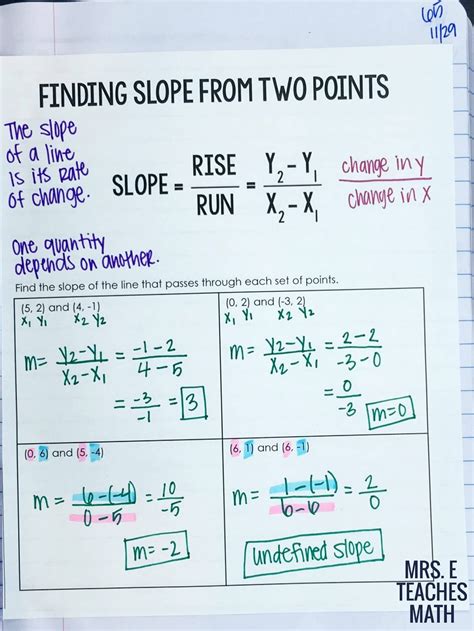 65
11/29
FINDING SLOPE FROM TWO POINTS
The slope
of a line
is its rate
of change.
SLOPE = RISE/RUN = Y₂-Y₁/X₂-X₁ change in y/change in x
One quantity
depends on another.
Find the slope of the line that passes through each set of points.
(5, 2) and (4, -1)
X₁ Y₁ X₂ Y₂
m= Y₂-Y₁/X₂-X₁ = -1-2/4-5
= -3/-1 = 3
(0, 2) and (-3, 2)
X₁ Y₁ X₂ Y₂
m= Y₂-Y₁/X₂-X₁ = 2-2/-3-0
= 0/-3 m=0
(0, 6) and (5, -4)
m = 6-(-4)/0-5 = 10/-5
m= -2
(6, 1) and (6, -1)
m = 1-(-1)/6-6 = 2/0
undefined slope
MRS. E
TEACHES
MATH